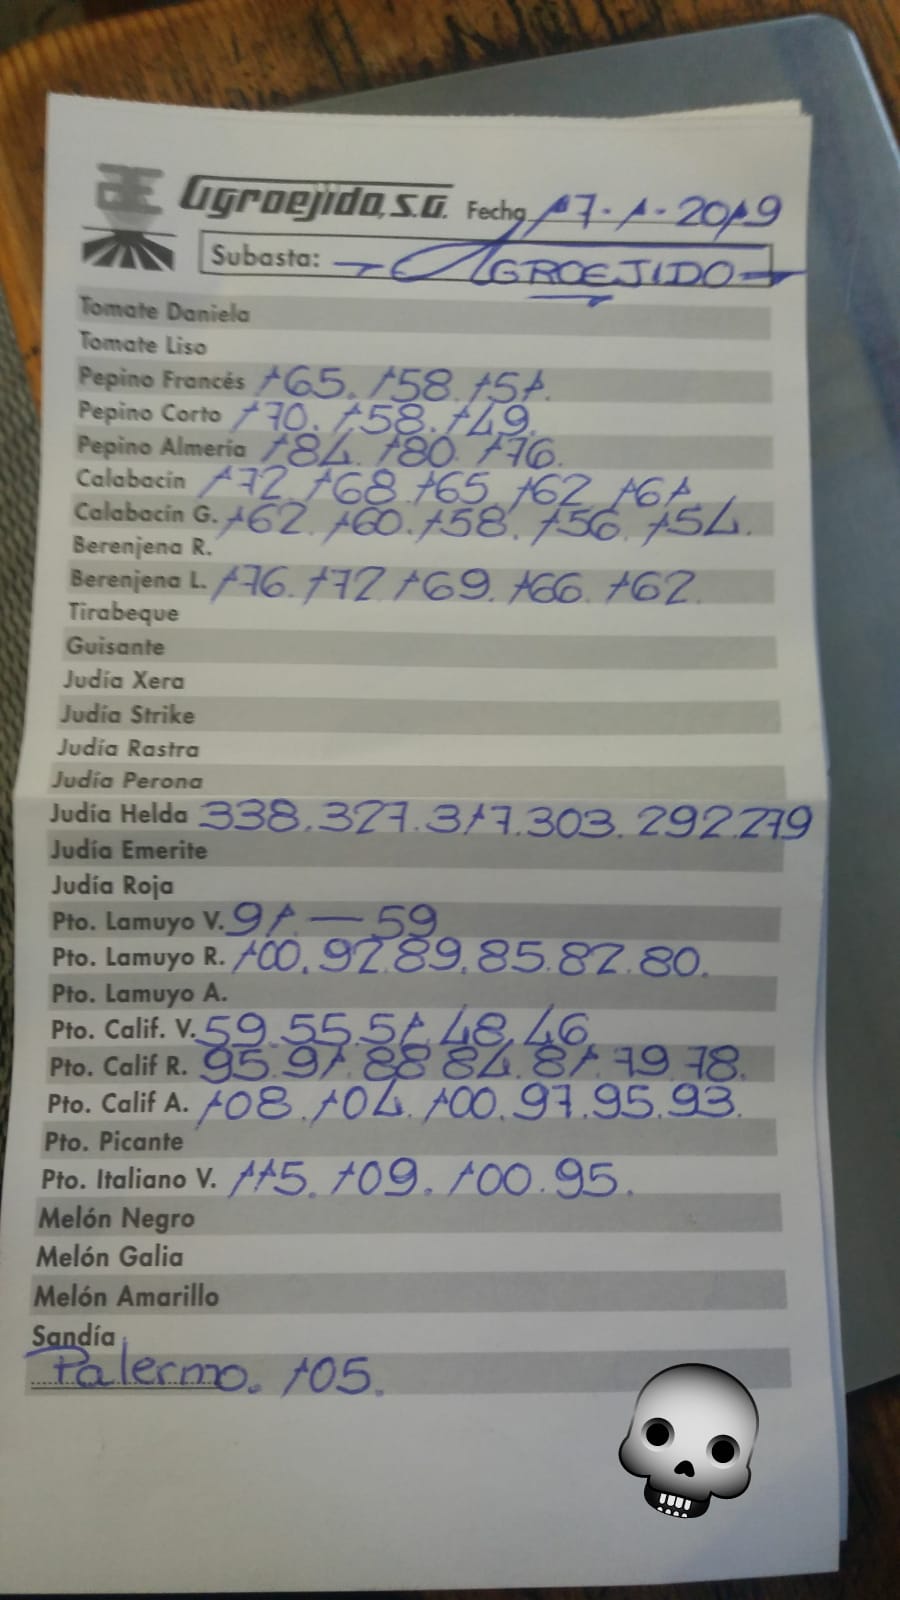 Agroejido, S.G. Fecha 17-1-2019
Subasta: AGROEJIDO
Tomate Daniela
Tomate Liso
Pepino Francés 165. 158. 151.
Pepino Corto 170. 158. 149.
Pepino Almería 184. 180. 176.
Calabacín 172. 168. 165. 162. 161.
Calabacín G. 162. 160. 158. 156. 154.
Berenjena R.
Berenjena L. 176. 172. 169. 166. 162.
Tirabeque
Guisante
Judía Xera
Judía Strike
Judía Rastra
Judía Perona
Judía Helda 338. 327. 317. 303. 292. 279
Judía Emerite
Judía Roja
Pto. Lamuyo V. 91. — 59
Pto. Lamuyo R. 100. 92. 89. 85. 82. 80.
Pto. Lamuyo A.
Pto. Calif. V. 59. 55. 51. 48. 46
Pto. Calif R. 95. 91. 88. 84. 81. 79. 78.
Pto. Calif A. 108. 104. 100. 97. 95. 93.
Pto. Picante
Pto. Italiano V. 115. 109. 100. 95.
Melón Negro
Melón Galia
Melón Amarillo
Sandía
Palermo. 105.